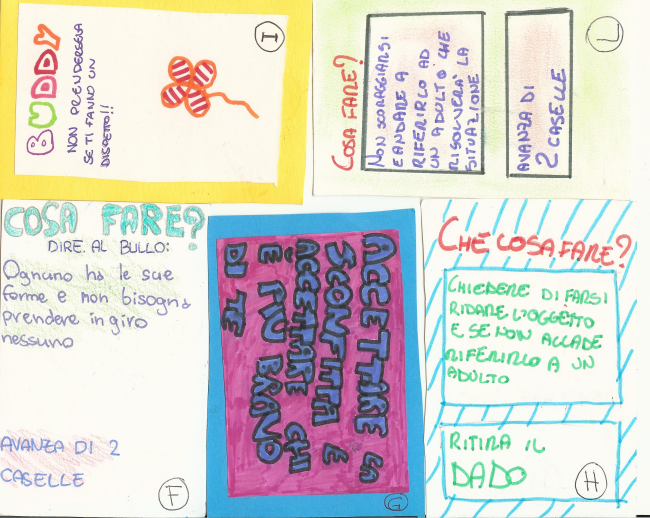 BUDDY
NON PRENDERSELA
SE TI FANNO UN
DISPETTO!!
I
COSA FARE?
NON SCORAGGIARSI
E ANDARE A
RIFERIRLO AD
UN ADULTO CHE
RISOLVERÀ LA
SITUAZIONE
AVANZA DI
2 CASELLE
L
COSA FARE?
DIRE AL BULLO:
Ognuno ha le sue
forme e non bisogna
prendere in giro
nessuno
AVANZA DI 2
CASELLE
F
ACCETTARE LA
SCONFITTA E
ACCETTARE CHI
È PIÙ BRAVO
DI TE
G
CHE COSA FARE?
CHIEDERE DI FARSI
RIDARE L'OGGETTO
E SE NON ACCADE
RIFERIRLO A UN
ADULTO
RITIRA IL
DADO
H